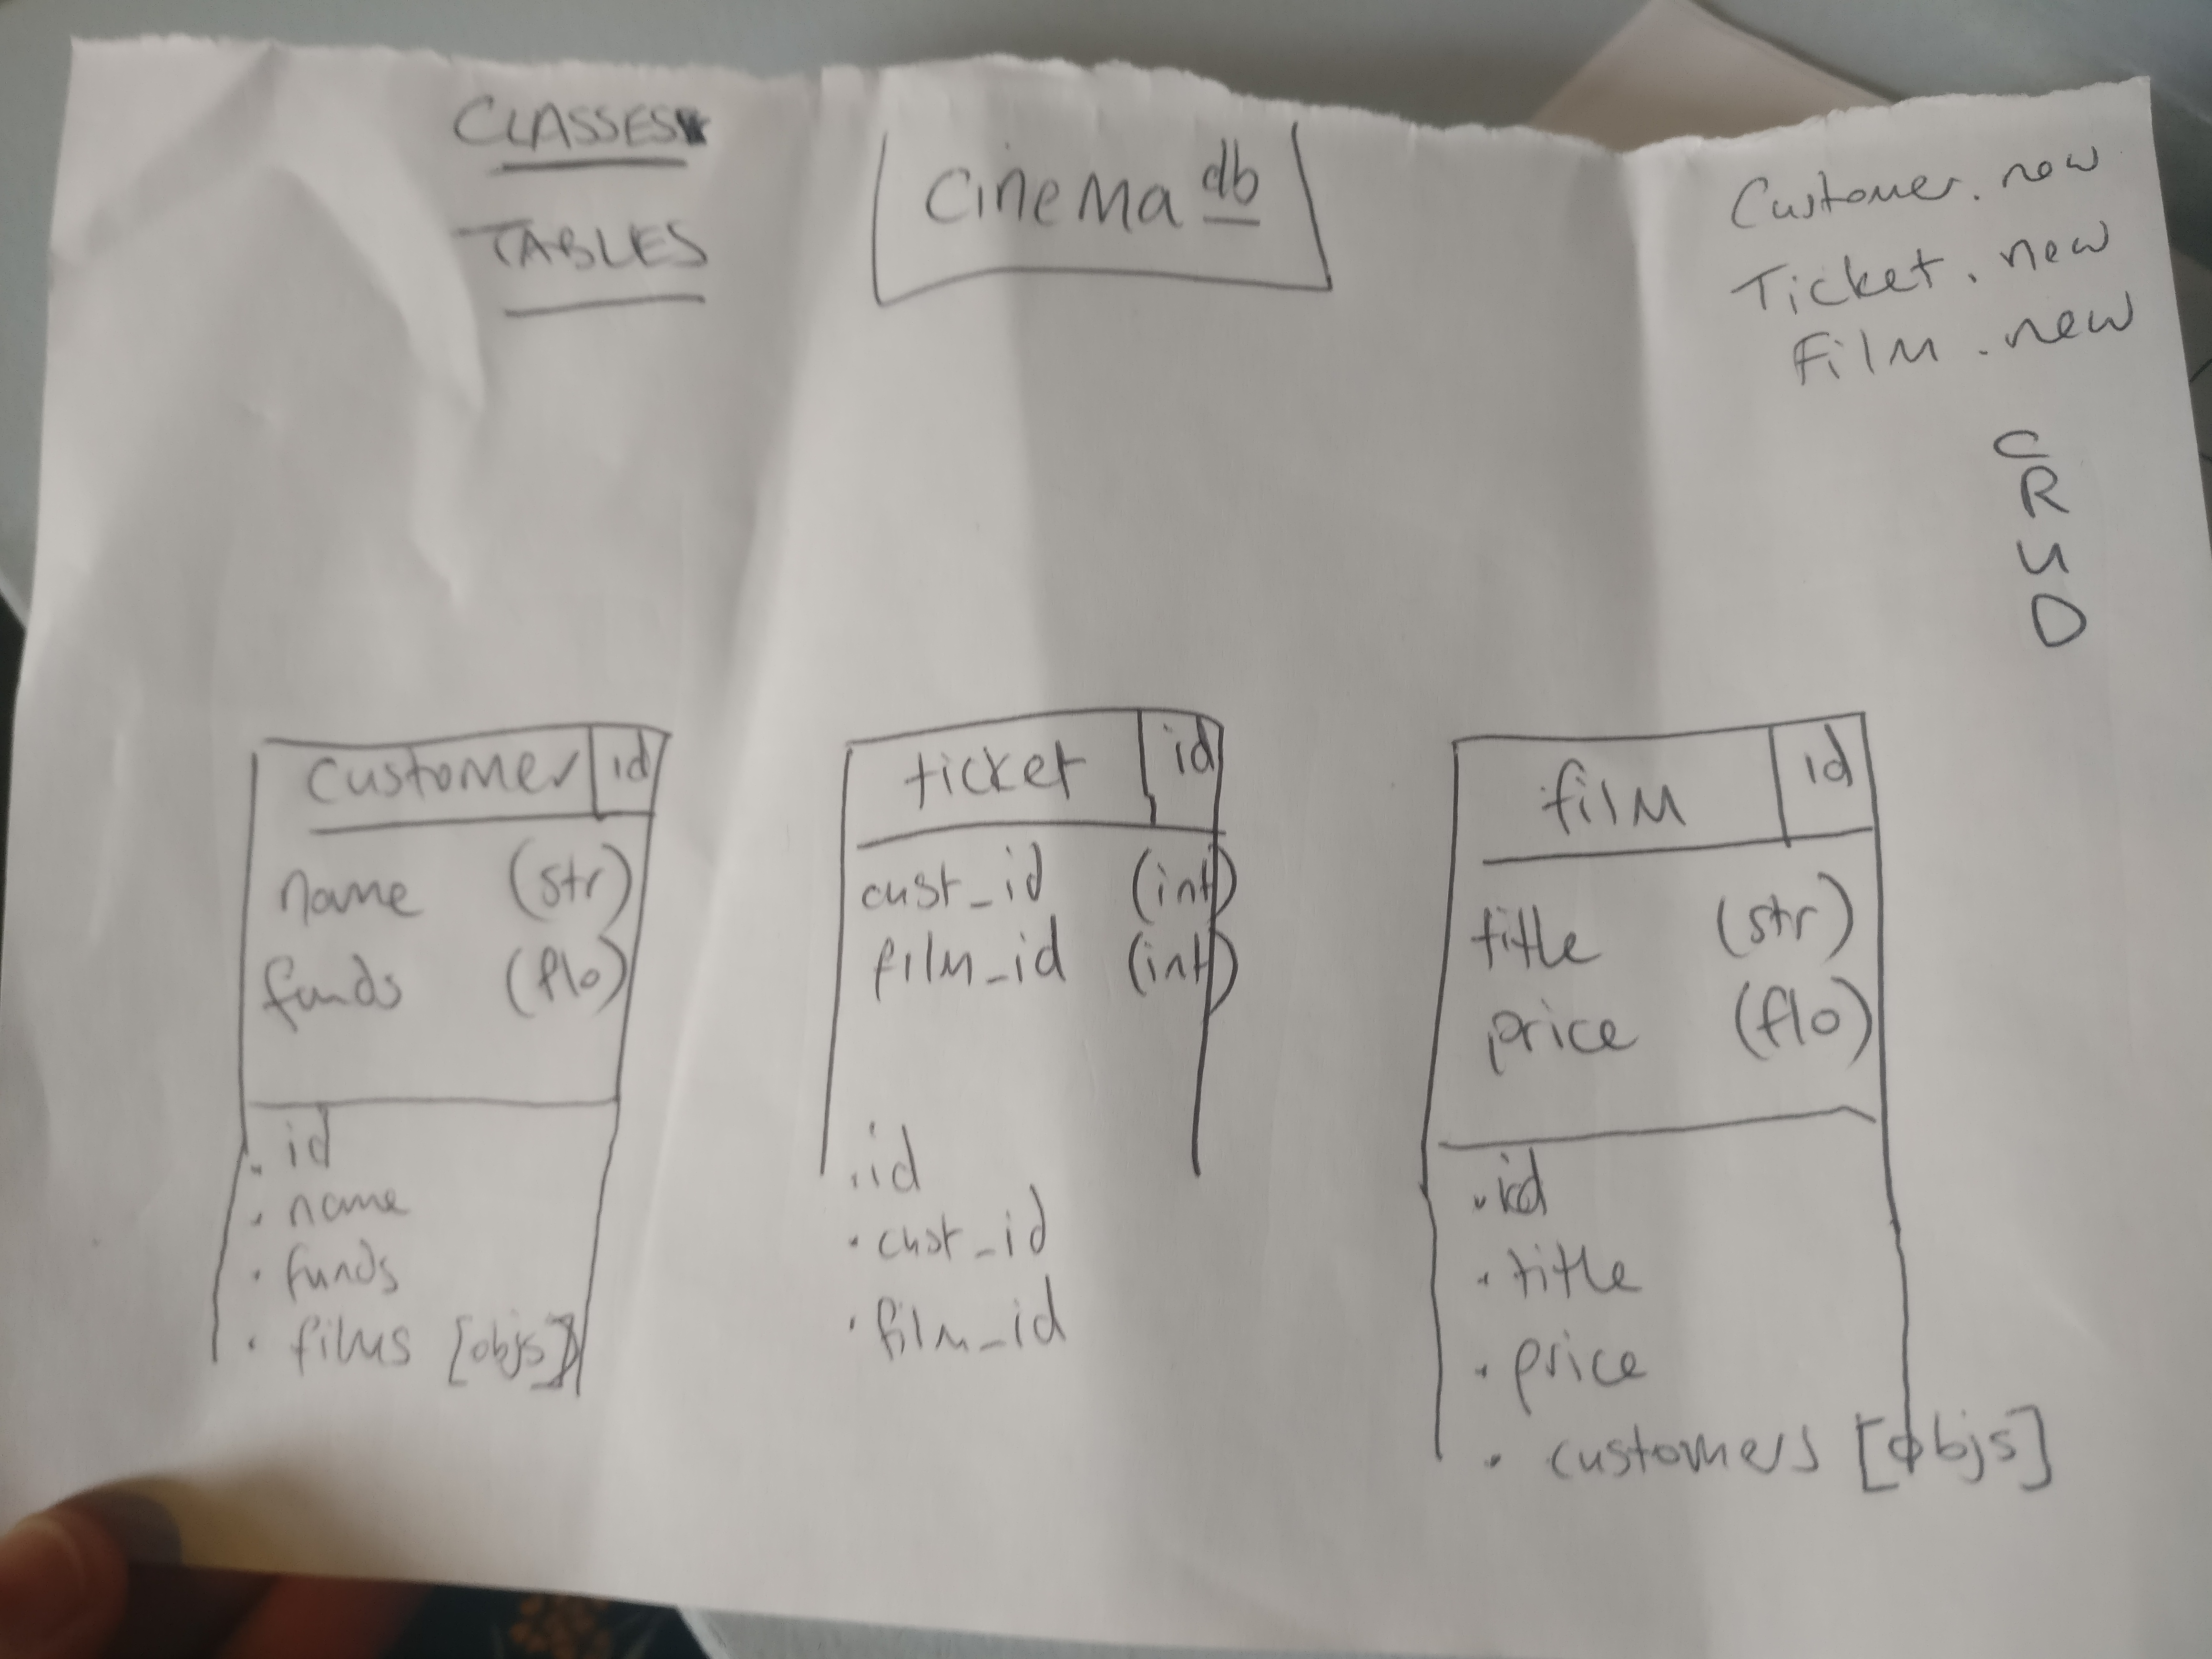 CLASSES
TABLES
cinema db
Customer.new
Ticket.new
Film.new
C
R
U
D
customer id
name (str)
funds (flo)
. id
. name
. funds
. films [objs]
ticket id
cust_id (int)
film_id (int)
. id
. cust_id
. film_id
film id
title (str)
price (flo)
. id
. title
. price
. customers [objs]